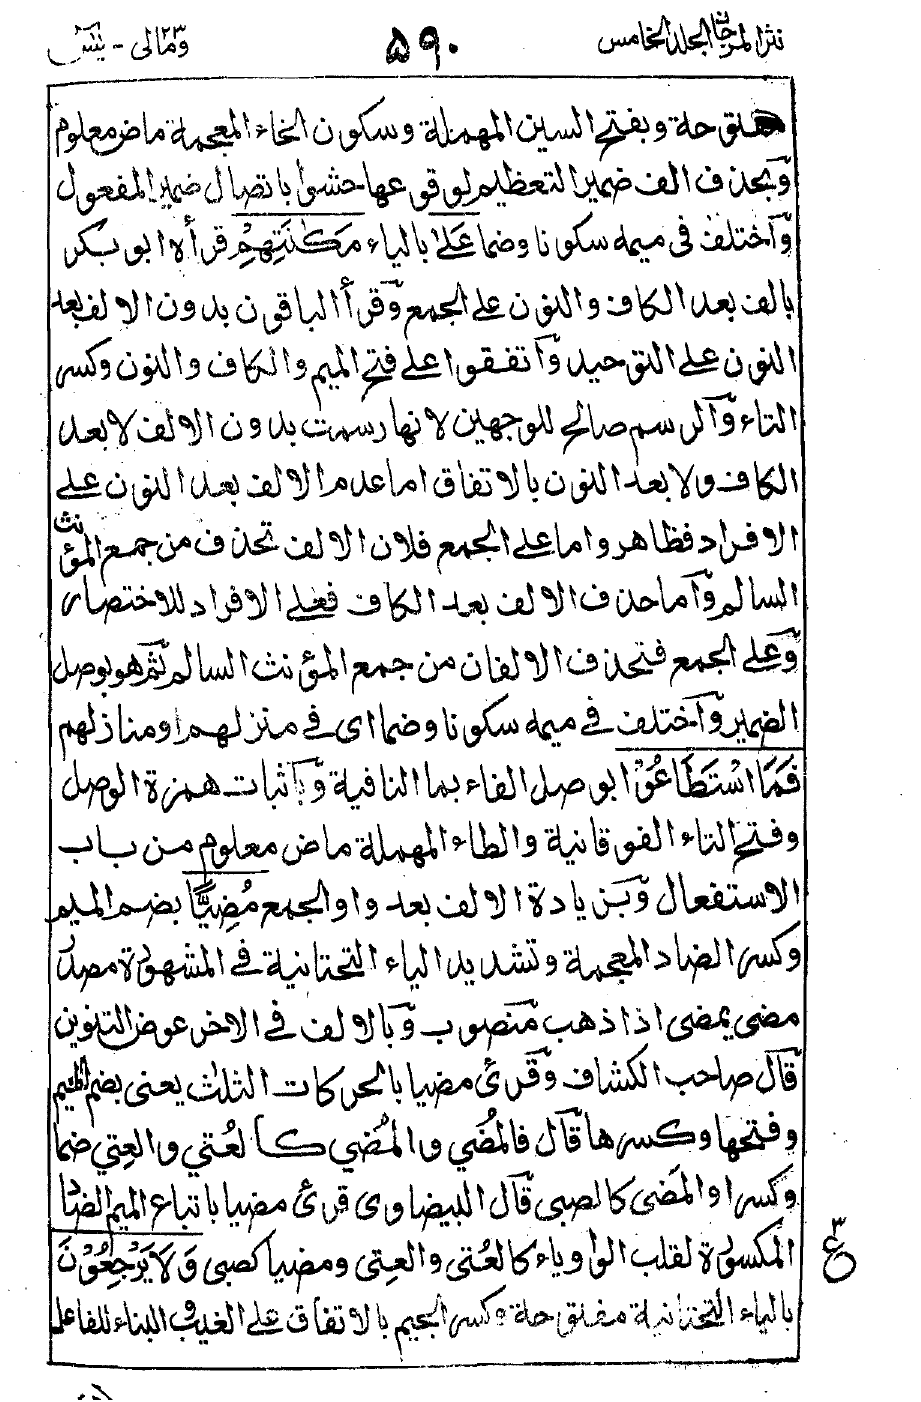 نثر المرجان الجلد الخامس
۵۹۰
ومالی ۲۳ - یٰسٓ
مفتوحة وبفتح السين المهملة وسكون الخاء المعجمة ماض معلوم
وبحذف الف ضمير التعظيم لوقوعها حشوا باتصال ضمير المفعول
واختلف فى ميمه سكونا وضما عَلىٰ بالياء مَكَانَتِهِمْ قرأه ابو بكر
بالف بعد الكاف والنون على الجمع وقرأ الباقون بدون الالف بعد
النون على التوحيد واتفقوا على فتح الميم والكاف والنون وكسر
التاء والرسم صالح للوجهين لانها رسمت بدون الالف لا بعد
الكاف ولا بعد النون بالاتفاق اما عدم الالف بعد النون على
الافراد فظاهر واما على الجمع فلان الالف تحذف من جمع المؤنث
السالم واما حذف الالف بعد الكاف فعلى الافراد للاختصار
وعلى الجمع فتحذف الالفان من جمع المؤنث السالم ثم هو بوصل
الضمير واختلف فى ميمه سكونا وضما اى فى منزلهم او منازلهم
فَمَا اسْتَطَاعُوْا بوصل الفاء بما النافية وباثبات همزة الوصل
وفتح التاء الفوقانية والطاء المهملة ماض معلوم من باب
الاستفعال وبزيادة الالف بعد واو الجمع مُضِيًّا بضم الميم
وكسر الضاد المعجمة وتشديد الياء التحتانية فى المشهورة مصدر
مضى يمضى اذا ذهب منصوب وبالالف فى الاخر عوض التنوين
قال صاحب الكشاف وقرئ مضيا بالحركات الثلث يعنى بضم الميم
وفتحها وكسرها قال فالمُضي والمِضي كالعُتي والعِتي ضما
وكسرا والمَضى كالصبى قال البيضاوى قرئ مضيا باتباع الميم الضاد
المكسورة لقلب الواو ياء كالعُتى والعِتى ومضيا كصبى وَلَا يَرْجِعُوْنَ
بالياء التحتانية مفتوحة وكسر الجيم بالاتفاق على الغيب والبناء للفاعل
۳
ع